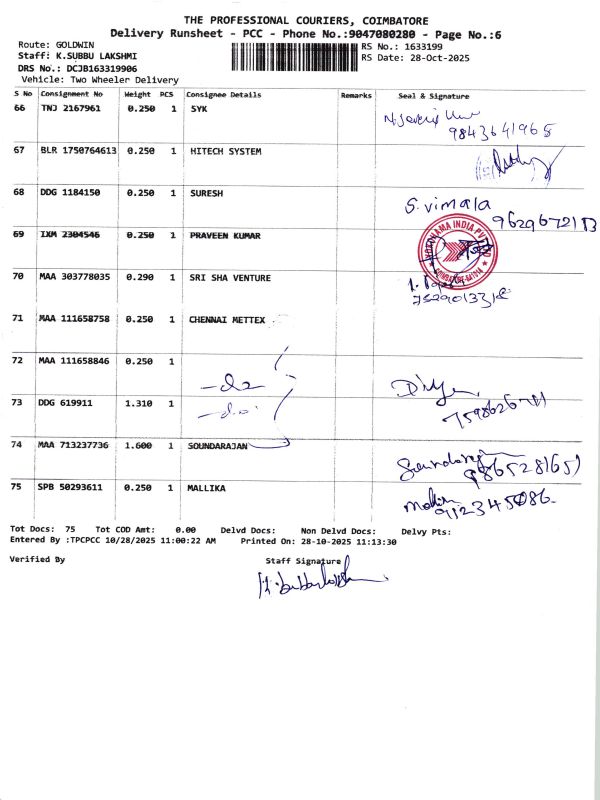 THE PROFESSIONAL COURIERS, COIMBATORE
Delivery Runsheet - PCC - Phone No.:9047080280 - Page No.:6
Route: GOLDWIN RS No.: 1633199
Staff: K.SUBBU LAKSHMI RS Date: 28-Oct-2025
DRS No.: DCJB163319906
Vehicle: Two Wheeler Delivery
S No Consignment No Weight PCS Consignee Details Remarks Seal & Signature
66 TNJ 2167961 0.250 1 SYK
9843641965
67 BLR 1750764613 0.250 1 HITECH SYSTEM
68 DDG 1184150 0.250 1 SURESH S.vimala
9629672113
69 IXM 2304546 0.250 1 PRAVEEN KUMAR
INDIA PVT LTD
70 MAA 303778035 0.290 1 SRI SHA VENTURE
71 MAA 111658758 0.250 1 CHENNAI METTEX
72 MAA 111658846 0.250 1
-do-
73 DDG 619911 1.310 1 -do-
74 MAA 713237736 1.600 1 SOUNDARAJAN
75 SPB 50293611 0.250 1 MALLIKA
9123450086
Tot Docs: 75 Tot COD Amt: 0.00 Delvd Docs: Non Delvd Docs: Delvy Pts:
Entered By :TPCPCC 10/28/2025 11:00:22 AM Printed On: 28-10-2025 11:13:30
Verified By Staff Signature